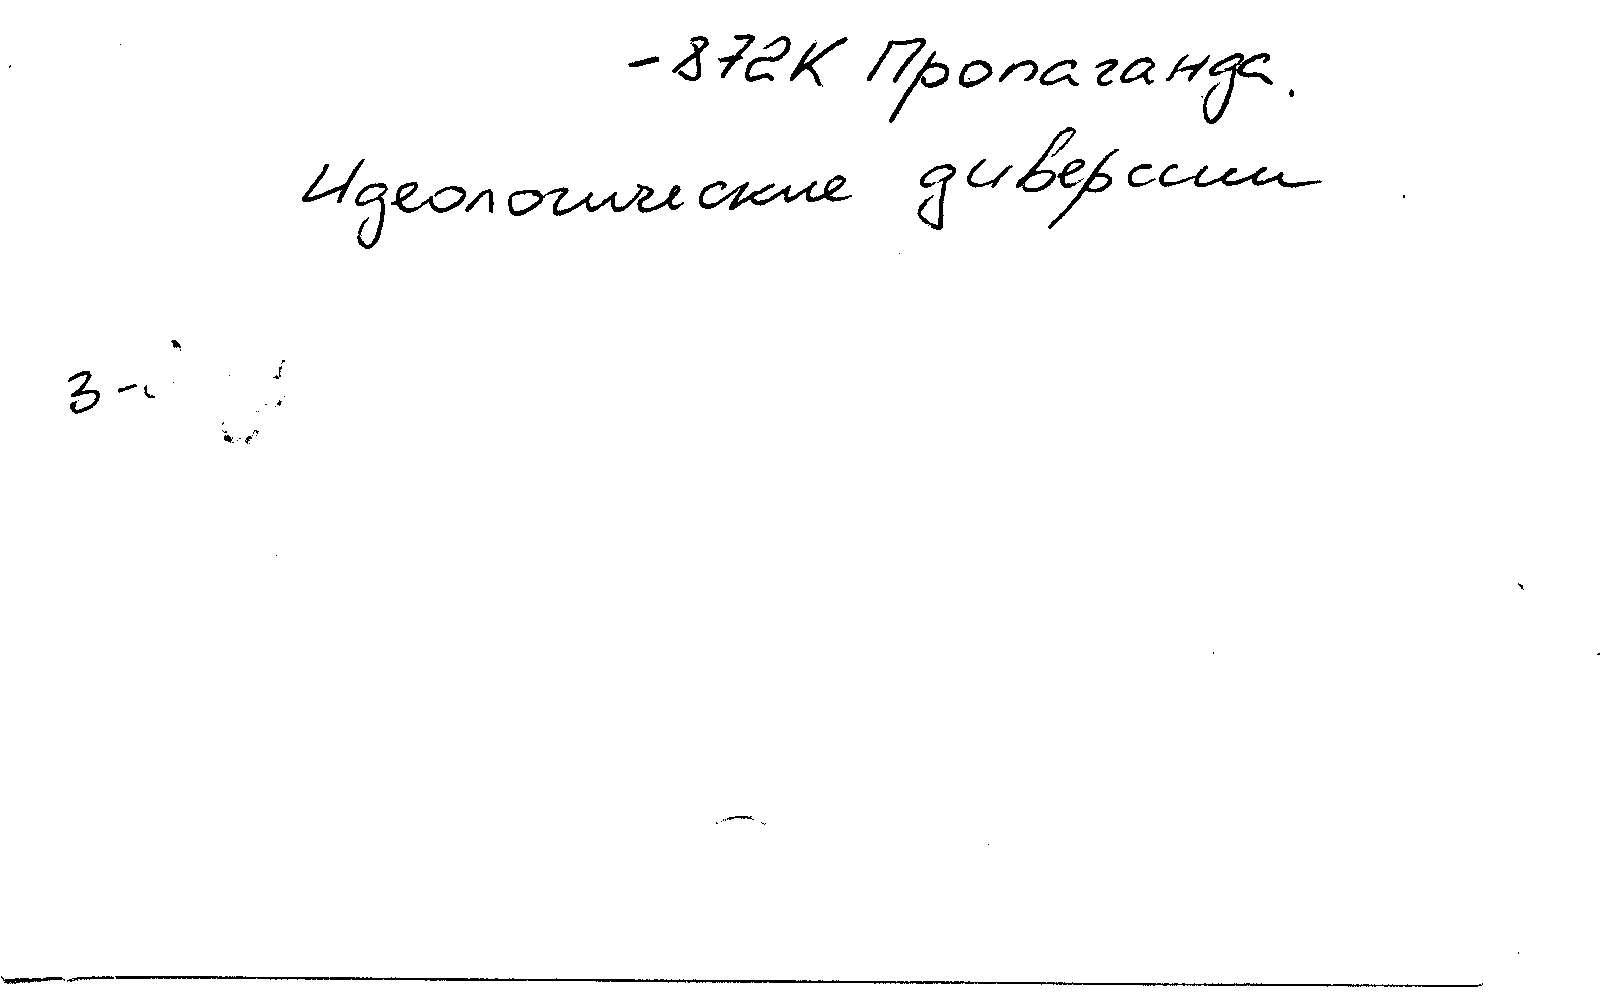 -872К Пропаганда.
Идеологические диверсии
3-